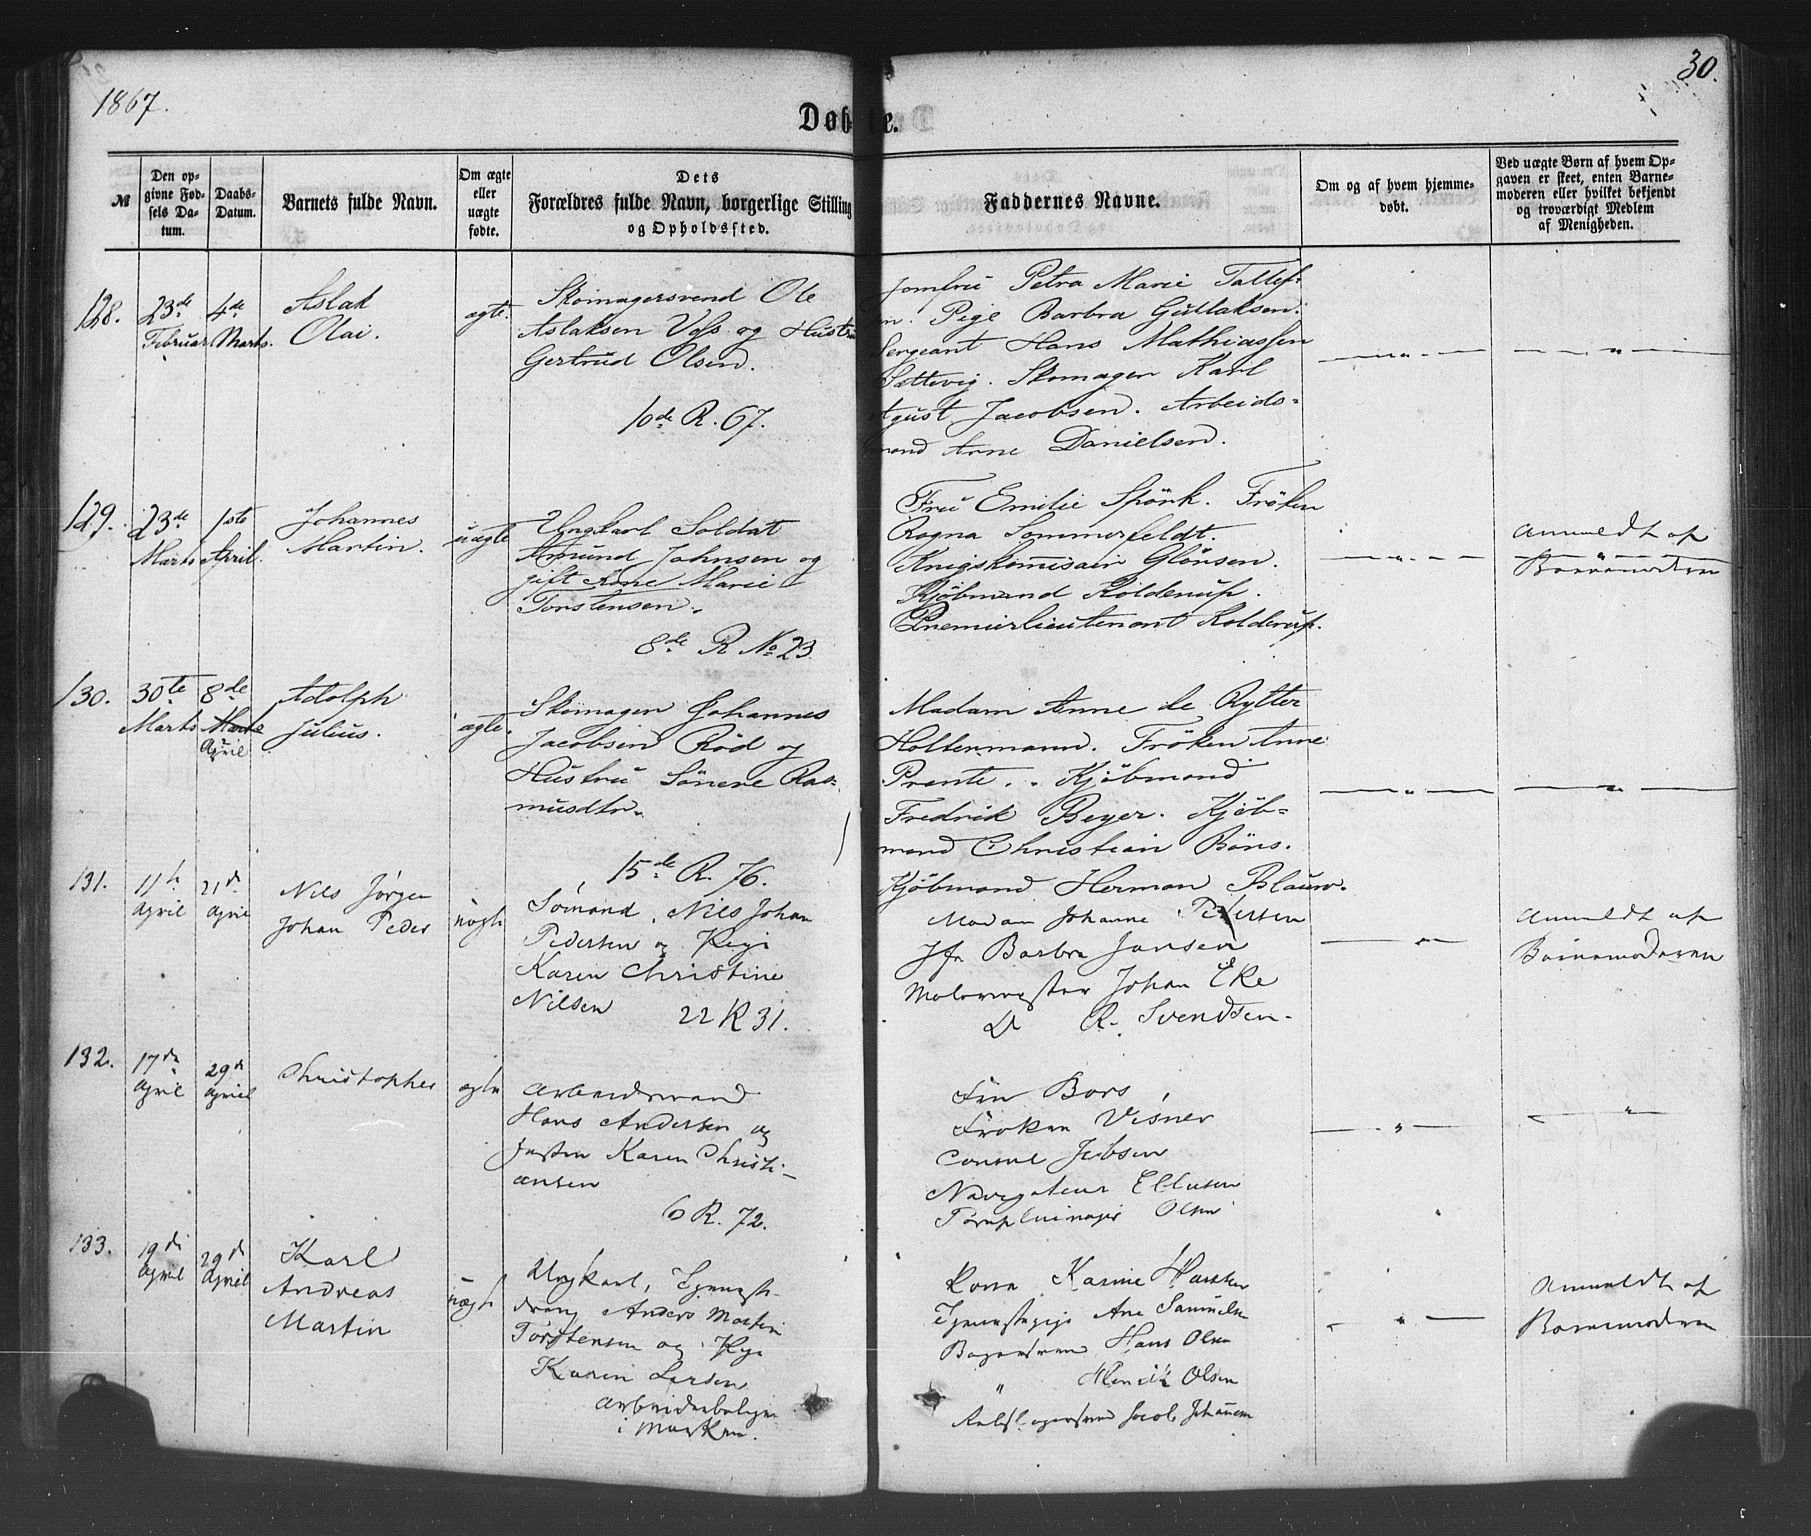 1867.
30.
Døbte.
№
Den opgivne Fødsels Datum.
Daabs-Datum.
Barnets fulde Navn.
Om ægte eller uægte fødte.
Dets Forældres fulde Navn, borgerlige Stilling og Opholdssted.
Faddernes Navne.
Om og af hvem hjemmedøbt.
Ved uægte Børn af hvem Opgaven er skeet, enten Barnemoderen eller hvilket bekjendt og troværdigt Medlem af Menigheden.
128.
23de Februar
4de Marts.
Aslak
Olai.
ægte.
Skomagersvend Ole
Aslaksen Voss og Hustru
Gertrud Olsen.
10de R. 67.
Jomfru Petra Marie
Pige Barbra Gullaksen.
Sergeant Hans Mathiassen
Sættevig. Skomager Karl
Agust Jacobsen. Arbeids-
mand Arne Danielsen.
129.
23de Marts
1ste April.
Johannes
Martin.
uægte
Ungkarl Soldat
Amund Johnsen og
gift Ane Marie
Torstensen.
8de R No 23
Fru Emilie Spörk. Fröken
Ragna Sommerfeldt.
Krigskomisair Glörsen.
Kjöbmand Kolderup.
Premierlieutenant Kolderup.
Anmeldt af
Barnemoderen
130.
30te Marts
8de Marts April
Adolph
Julius.
ægte.
Skomager Johannes
Jacobsen Röd og
Hustru Sönève Ras-
musdtr.
15de R. 76.
Madam Anne de Rytter
Holtermann. Fröken Anne
Prante. Kjöbmand
Fredrik Beyer. Kjöb-
mand Christian Börs.
Kjöbmand Herman Blauw.
131.
11te April
21de April
Nils Jørgen
Johan Peder
uægte
Sömand, Nils Johan
Pedersen og Pige
Karen Christine
Nilsen 22 R 31.
Madam Johanne Petersen
Jfr Barbra Jansen
Malermester Johan Eke
D R. Svendsen.
Anmeldt af
Barnemoderen
132.
17de April
29de April
Christopher
ægte
Arbeidsmand
Hans Andersen og
Hustru Karen Christi-
ansen
6 R. 72.
Fru Börs,
Fröken Visner
Consul Jebsen
Navigateur Ellusen
Olsen
133.
19de April
29de April
Karl
Andreas
Martin
uægte
Ungkarl, Tjeneste-
dreng Anders Martin
Torstensen og Pige
Karen Larsen
Arbeiderboliger
i Marken.
Kone Karine Hansen
Tjenestepige Ane Samuelsen
Bagersvend Hans Olsen
" Henrik Olsen
Jacob Johannesen
Anmeldt af
Barnemoderen